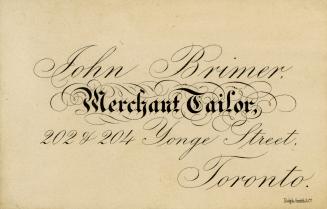 John Brimer.
Merchant Tailor,
202 & 204 Yonge Street.
Toronto.
Rolph Smith & Co.